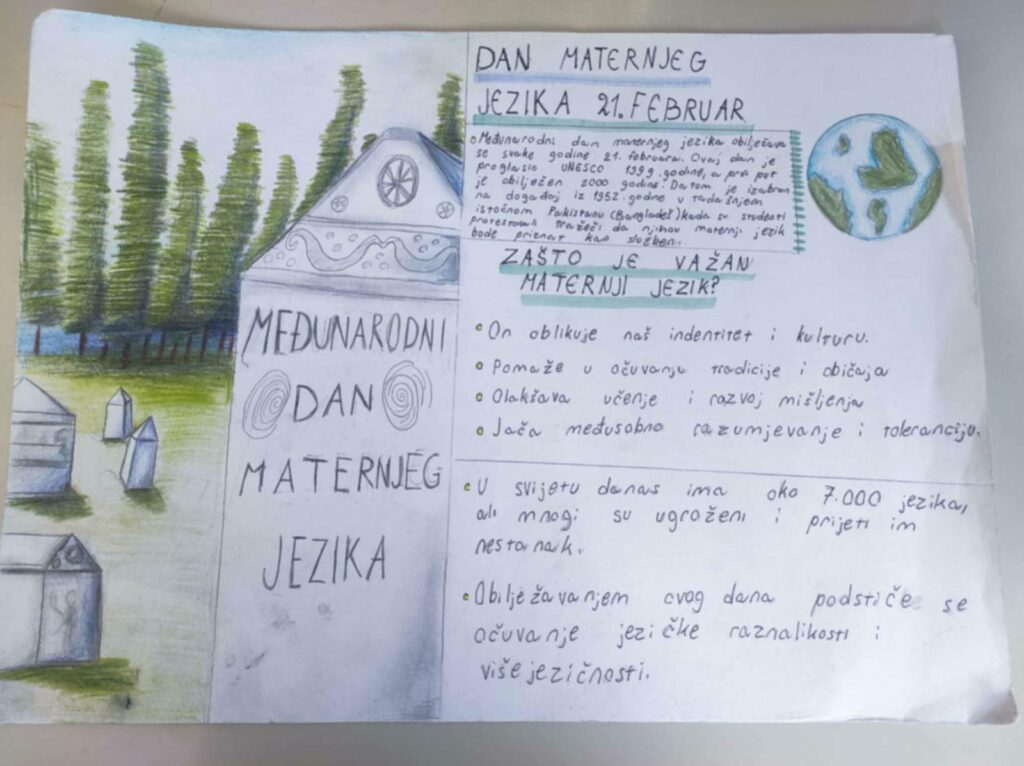 MEĐUNARODNI
DAN
MATERNJEG
JEZIKA
DAN MATERNJEG
JEZIKA 21. FEBRUAR
Međunarodni dan maternjeg jezika obilježava
se svake godine 21. februara. Ovaj dan je
proglasio UNESCO 1999. godine, a prvi put
je obilježen 2000 godine. Datom je izabran
na događaj iz 1952. godine u tadašnjem
istočnom Pakistanu (Bangladeš) kada su studenti
protestovali tražeći da njihov maternji jezik
bude priznat kao službeni.
ZAŠTO JE VAŽAN
MATERNJI JEZIK?
On oblikuje naš indentitet i kulturu.
Pomaže u očuvanju tradicije i običaja
Olakšava učenje i razvoj mišljenja
Jača međusobno razumjevanje i toleranciju.
U svijetu danas ima oko 7.000 jezika,
ali mnogi su ugroženi i prijeti im
nestanak.
Obilježavanjem ovog dana podstiče se
očuvanje jezičke raznalikosti i
višejezičnosti.